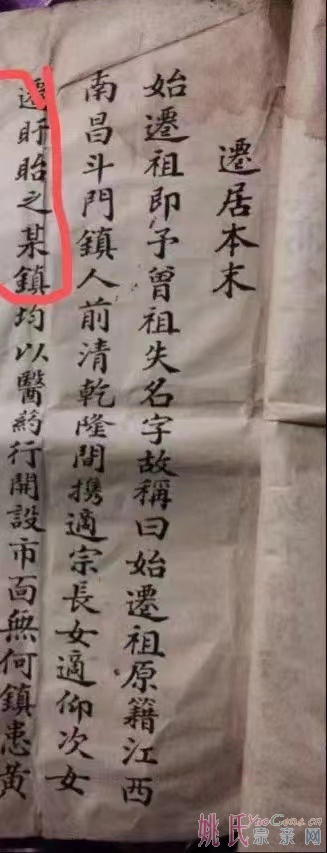 遷居本末
始遷祖即予曾祖失名字故稱曰始遷祖原籍江西
南昌斗門鎮人前清乾隆間攜適宗長女適仰次女
遷盱眙之某鎮均以醫葯行開設市面無何鎮患黃
姚氏宗亲网
YaoGens.cn